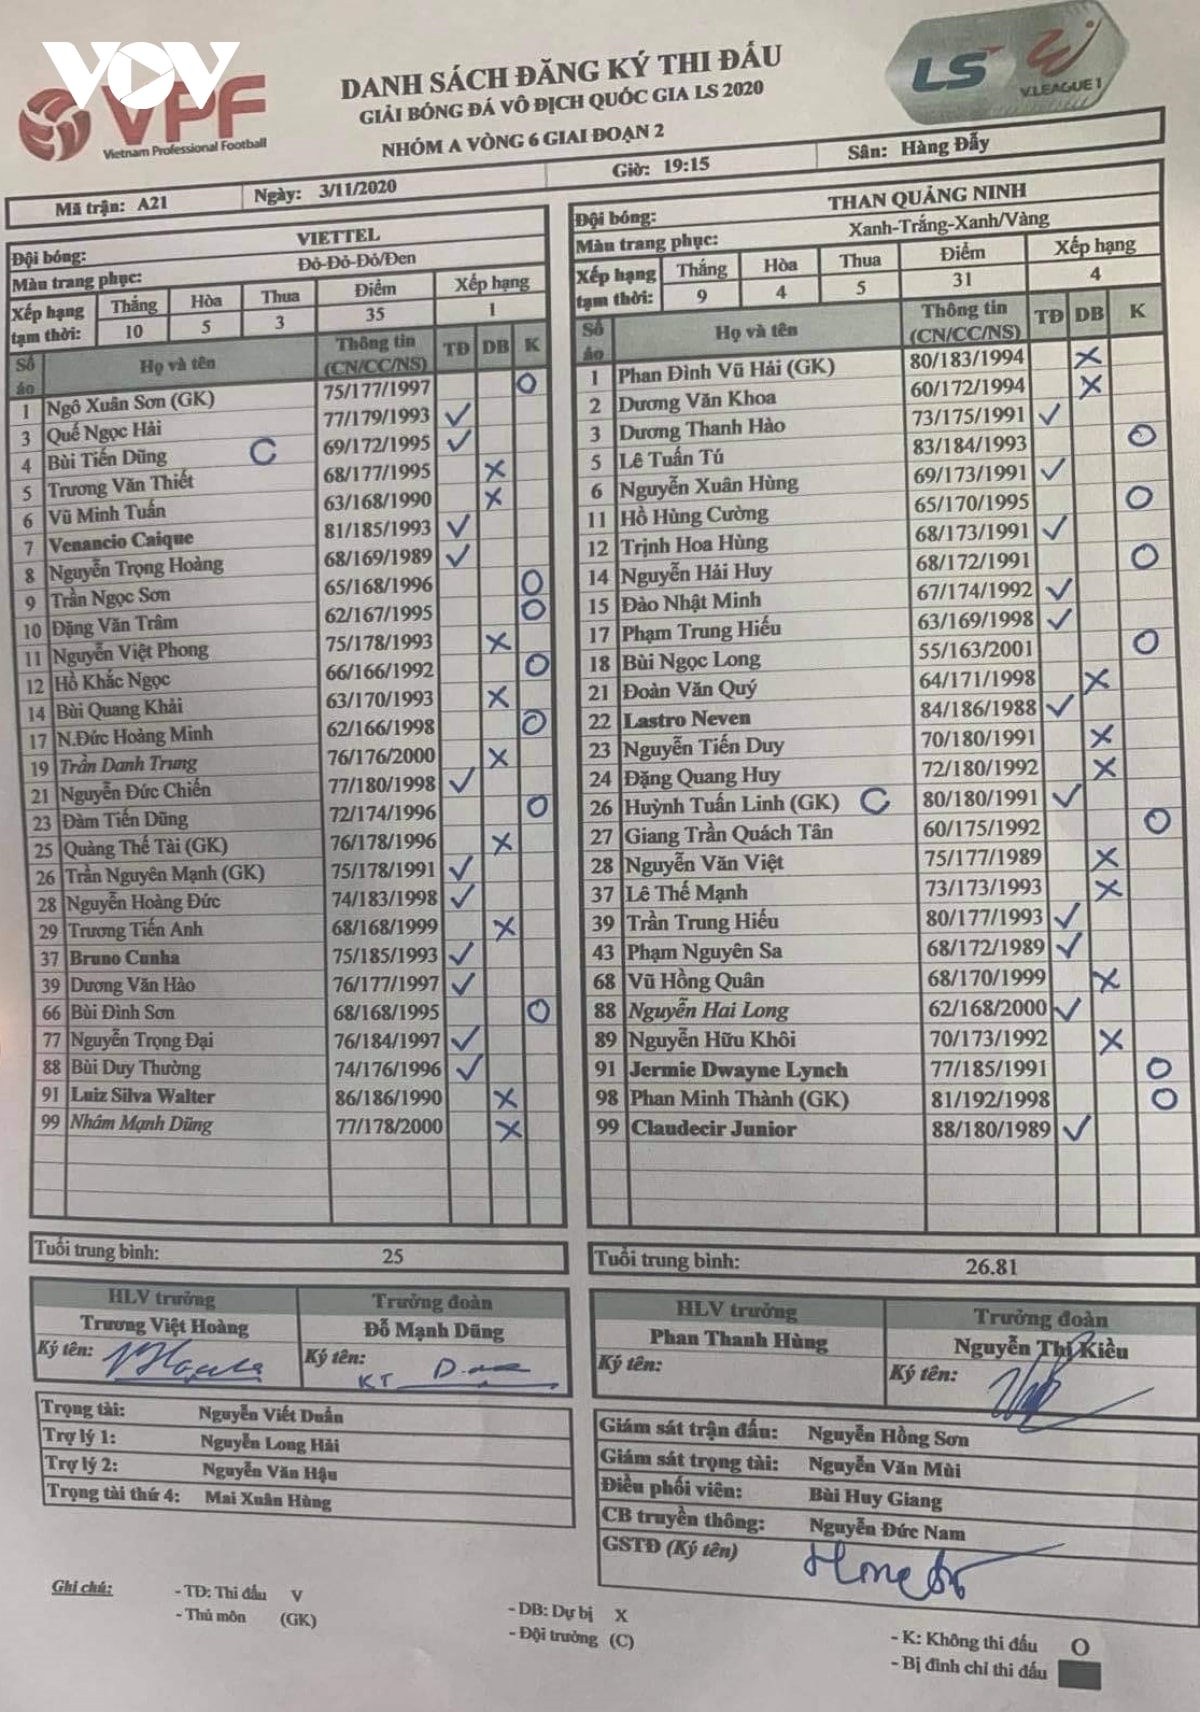 VOV
VPF
Vietnam Professional Football
DANH SÁCH ĐĂNG KÝ THI ĐẤU
GIẢI BÓNG ĐÁ VÔ ĐỊCH QUỐC GIA LS 2020
NHÓM A VÒNG 6 GIAI ĐOẠN 2
LS V.LEAGUE 1
Mã trận: A21 Ngày: 3/11/2020 Giờ: 19:15 Sân: Hàng Đẫy
Đội bóng: VIETTEL
Màu trang phục: Đỏ-Đỏ-Đỏ/Đen
Xếp hạng tạm thời: Thắng Hòa Thua Điểm Xếp hạng
10 5 3 35 1
Số áo Họ và tên Thông tin (CN/CC/NS) TĐ DB K
1 Ngô Xuân Sơn (GK) 75/177/1997 O
3 Quế Ngọc Hải 77/179/1993 ✓
4 Bùi Tiến Dũng C 69/172/1995 ✓
5 Trương Văn Thiết 68/177/1995 X
6 Vũ Minh Tuấn 63/168/1990 X
7 Venancio Caique 81/185/1993 ✓
8 Nguyễn Trọng Hoàng 68/169/1989 ✓
9 Trần Ngọc Sơn 65/168/1996 O
10 Đặng Văn Trâm 62/167/1995 O
11 Nguyễn Việt Phong 75/178/1993 X
12 Hồ Khắc Ngọc 66/166/1992 O
14 Bùi Quang Khải 63/170/1993 X
17 N.Đức Hoàng Minh 62/166/1998 O
19 Trần Danh Trung 76/176/2000 X
21 Nguyễn Đức Chiến 77/180/1998 ✓
23 Đàm Tiến Dũng 72/174/1996 O
25 Quàng Thế Tài (GK) 76/178/1996 X
26 Trần Nguyên Mạnh (GK) 75/178/1991 ✓
28 Nguyễn Hoàng Đức 74/183/1998 ✓
29 Trương Tiến Anh 68/168/1999 X
37 Bruno Cunha 75/185/1993 ✓
39 Dương Văn Hào 76/177/1997 ✓
66 Bùi Đình Sơn 68/168/1995 O
77 Nguyễn Trọng Đại 76/184/1997 ✓
88 Bùi Duy Thường 74/176/1996 ✓
91 Luiz Silva Walter 86/186/1990 X
99 Nhâm Mạnh Dũng 77/178/2000 X
Tuổi trung bình: 25
HLV trưởng Trưởng đoàn
Trương Việt Hoàng Đỗ Mạnh Dũng
Ký tên: Ký tên:
KT
Trọng tài: Nguyễn Viết Duẩn
Trợ lý 1: Nguyễn Long Hải
Trợ lý 2: Nguyễn Văn Hậu
Trọng tài thứ 4: Mai Xuân Hùng
Đội bóng: THAN QUẢNG NINH
Màu trang phục: Xanh-Trắng-Xanh/Vàng
Xếp hạng tạm thời: Thắng Hòa Thua Điểm Xếp hạng
9 4 5 31 4
Số áo Họ và tên Thông tin (CN/CC/NS) TĐ DB K
1 Phan Đình Vũ Hải (GK) 80/183/1994 X
2 Dương Văn Khoa 60/172/1994 X
3 Dương Thanh Hào 73/175/1991 ✓
5 Lê Tuấn Tú 83/184/1993 O
6 Nguyễn Xuân Hùng 69/173/1991 ✓
11 Hồ Hùng Cường 65/170/1995 O
12 Trịnh Hoa Hùng 68/173/1991 ✓
14 Nguyễn Hải Huy 68/172/1991 O
15 Đào Nhật Minh 67/174/1992 ✓
17 Phạm Trung Hiếu 63/169/1998 ✓
18 Bùi Ngọc Long 55/163/2001 O
21 Đoàn Văn Quý 64/171/1998 X
22 Lastro Neven 84/186/1988 ✓
23 Nguyễn Tiến Duy 70/180/1991 X
24 Đặng Quang Huy 72/180/1992 X
26 Huỳnh Tuấn Linh (GK) C 80/180/1991 ✓
27 Giang Trần Quách Tân 60/175/1992 O
28 Nguyễn Văn Việt 75/177/1989 X
37 Lê Thế Mạnh 73/173/1993 X
39 Trần Trung Hiếu 80/177/1993 ✓
43 Phạm Nguyên Sa 68/172/1989 ✓
68 Vũ Hồng Quân 68/170/1999 X
88 Nguyễn Hai Long 62/168/2000 ✓
89 Nguyễn Hữu Khôi 70/173/1992 X
91 Jermie Dwayne Lynch 77/185/1991 O
98 Phan Minh Thành (GK) 81/192/1998 O
99 Claudecir Junior 88/180/1989 ✓
Tuổi trung bình: 26.81
HLV trưởng Trưởng đoàn
Phan Thanh Hùng Nguyễn Thị Kiều
Ký tên: Ký tên:
Giám sát trận đấu: Nguyễn Hồng Sơn
Giám sát trọng tài: Nguyễn Văn Mùi
Điều phối viên: Bùi Huy Giang
CB truyền thông: Nguyễn Đức Nam
GSTĐ (Ký tên)
Ghi chú: - TĐ: Thi đấu V - DB: Dự bị X - K: Không thi đấu O
- Thủ môn (GK) - Đội trưởng (C) - Bị đình chỉ thi đấu